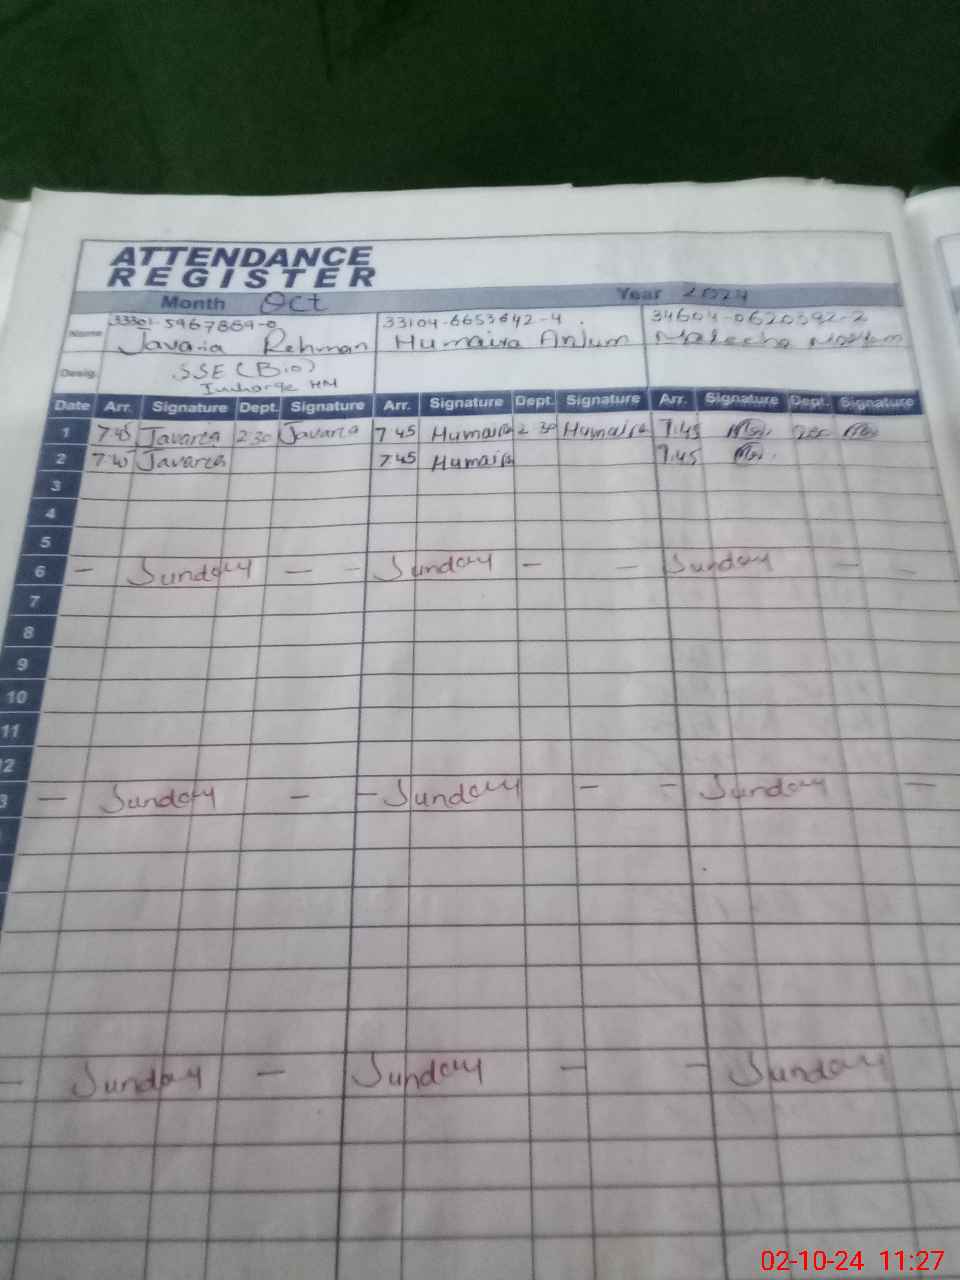 ATTENDANCE
REGISTER
Month Oct Year 2024
33301-5967869-0 33104-6653642-4 34604-0620592-2
Name Javaria Rehman Humaira Anjum
Desig. SSE (Bio)
Incharge HM
Date Arr. Signature Dept. Signature Arr. Signature Dept. Signature Arr. Signature Dept. Signature
1 7 45 Javaria 2 30 Javaria 7 45 Humaira 2 30 Humaira 7.45
2 7 45 Javaria 7 45 Humaira 7.45
3
4
5
6 — Sunday — – Sunday — — Sunday — –
7
8
9
10
11
2
3 — Sunday — – Sunday – – Sunday —
– Sunday – Sunday – – Sunday
02-10-24 11:27